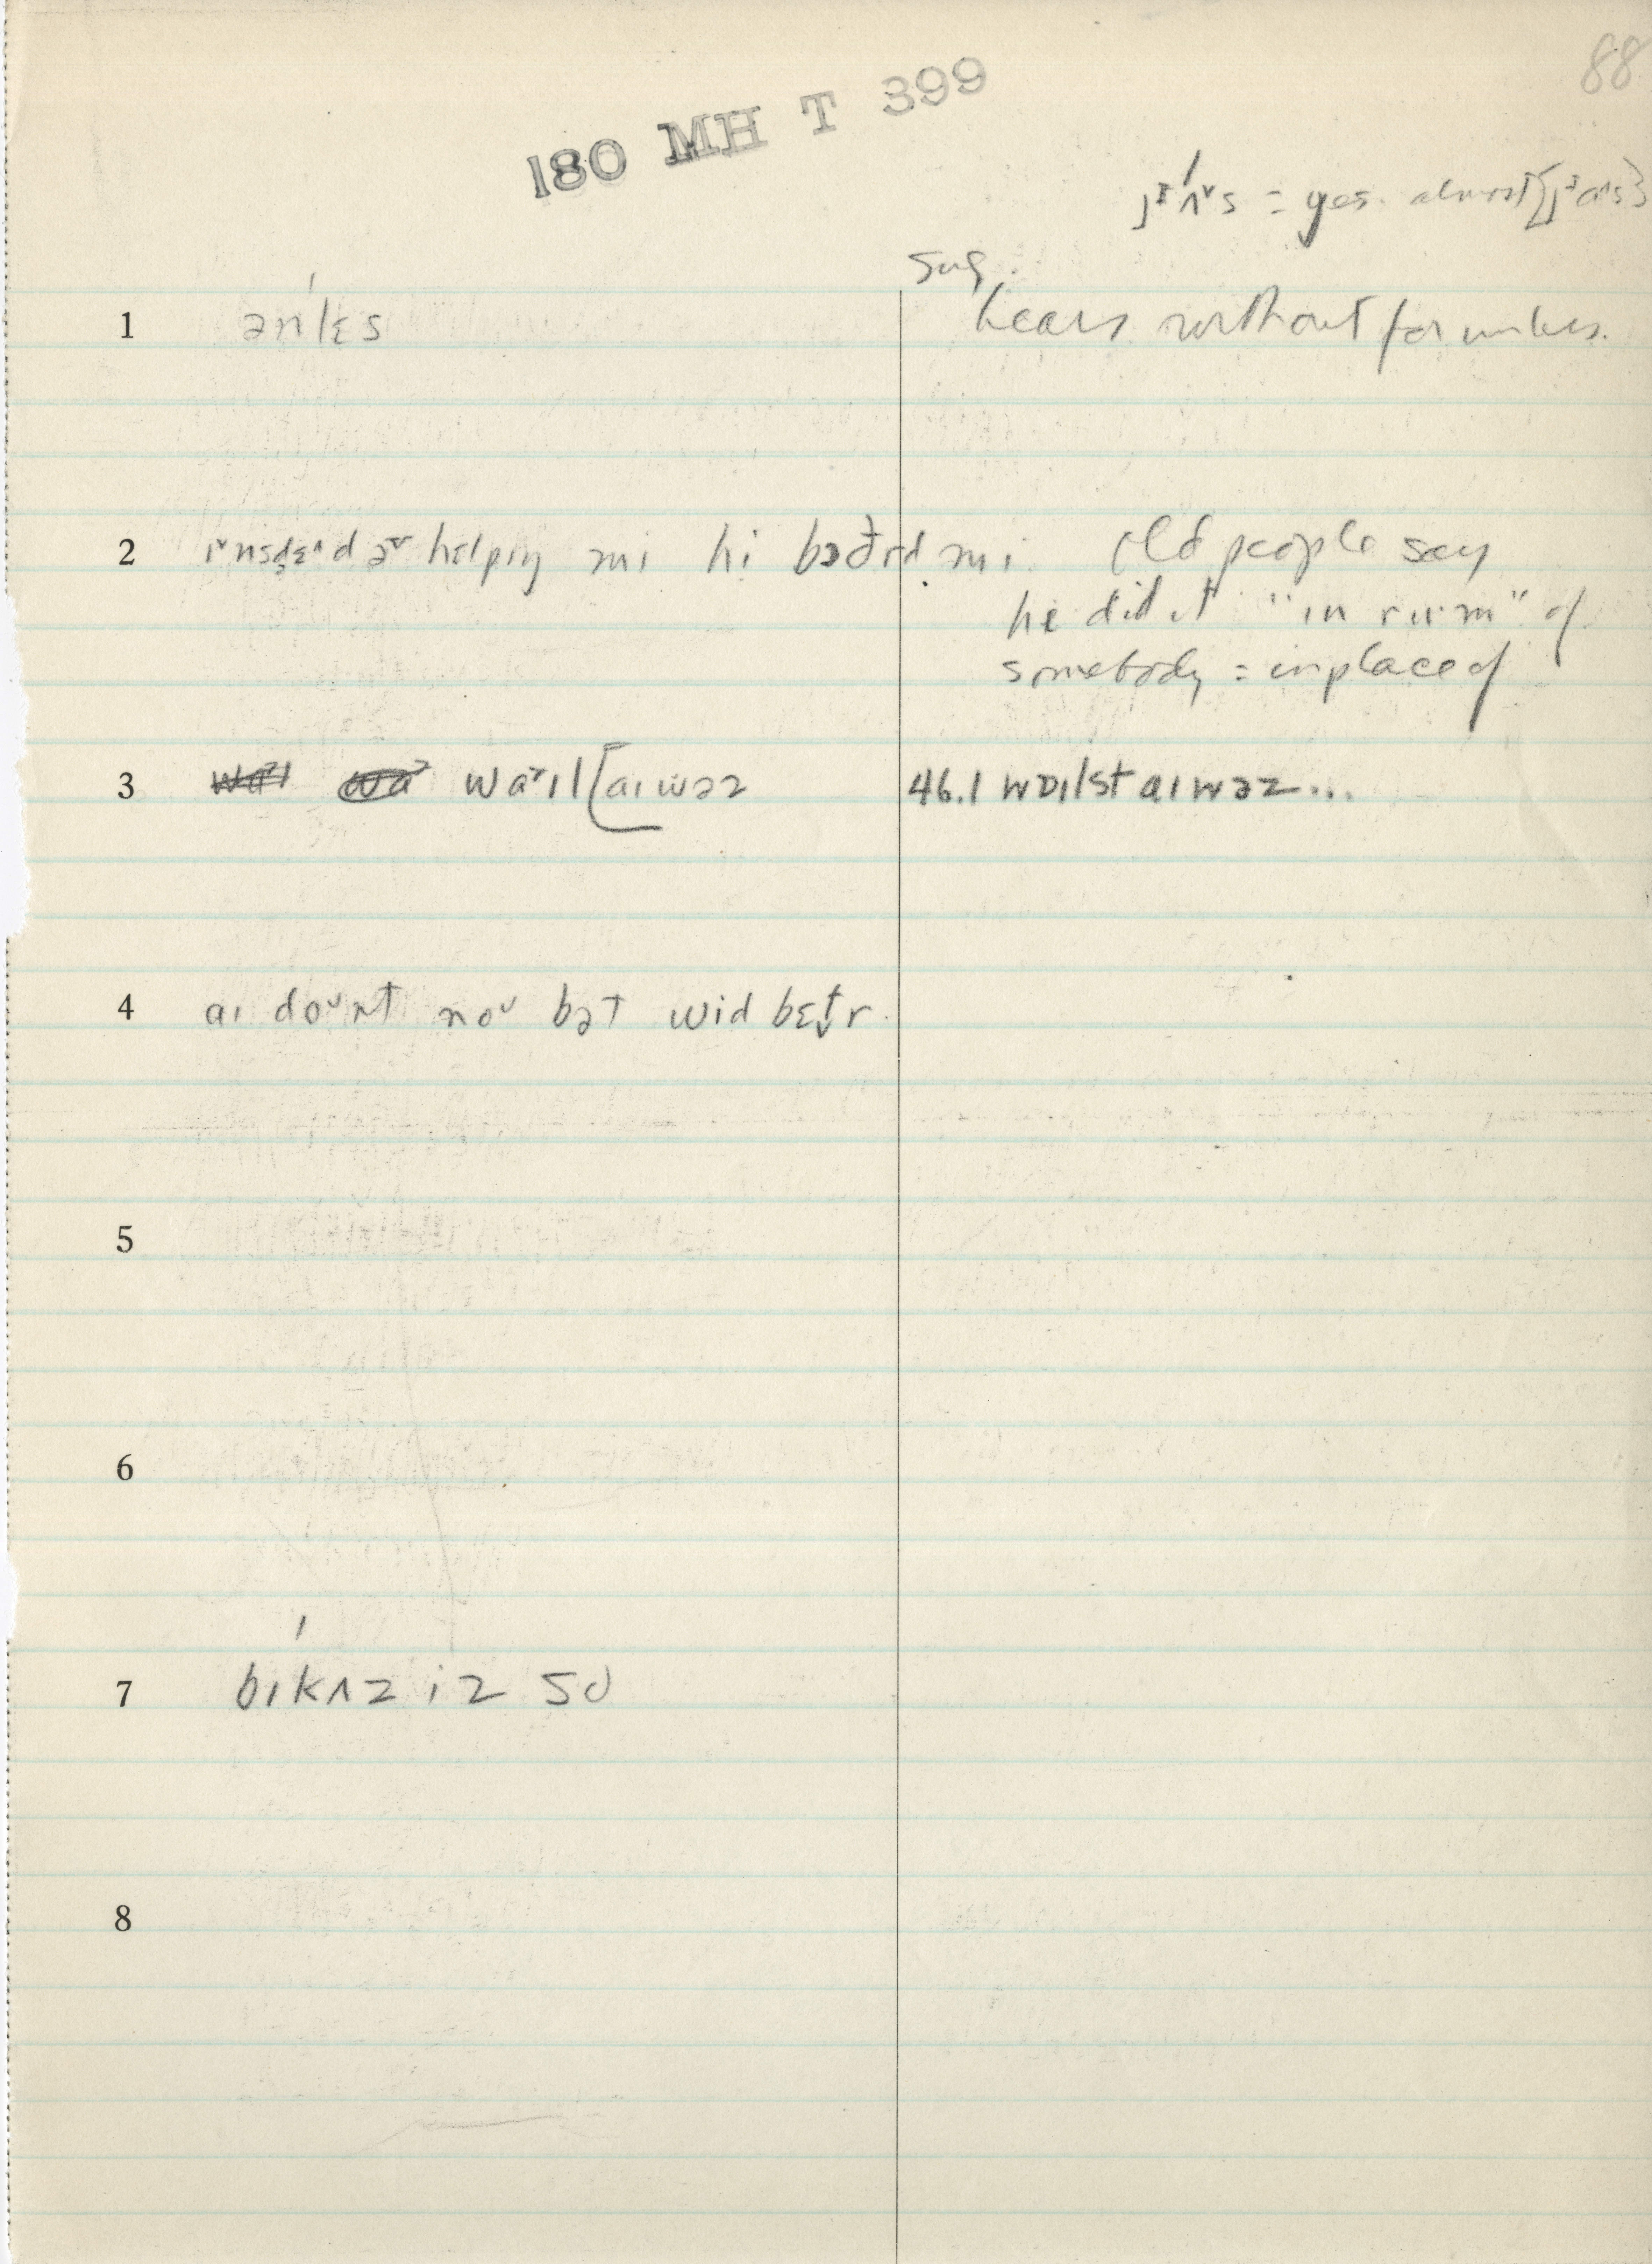 88
180 MH T 399
jᶦʌ́ᵛs = yes. almost [jᶦaᶺs]
sug.
1 ənlɛ́s hears without for unless.
2 ɪ˅nsdɛ˄d ə˅ hɛlpɪŋ mi hi bɔðrd mi. Old people say
he did it "in rum" of
somebody = in place of
3 waɪl [aɪ wəz 46.1 wɒɪlst aɪ wəz...
4 aɪ doᵘnt noᵘ bət wid bɛt̬r
5
6
7 bɪkʌ́z iz so
8